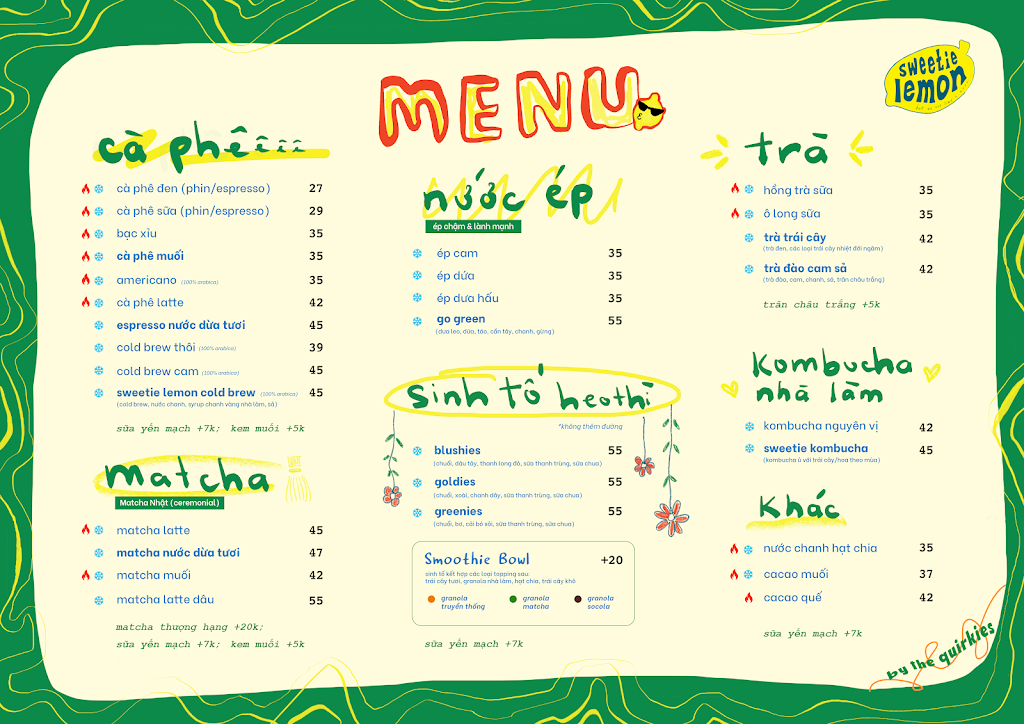 MENU
sweetie
lemon
cà phêêêê
cà phê đen (phin/espresso) 27
cà phê sữa (phin/espresso) 29
bạc xỉu 35
cà phê muối 35
americano (100% arabica) 35
cà phê latte 42
espresso nước dừa tươi 45
cold brew thôi (100% arabica) 39
cold brew cam (100% arabica) 45
sweetie lemon cold brew (100% arabica) 45
(cold brew, nước chanh, syrup chanh vàng nhà làm, sả)
sữa yến mạch +7k; kem muối +5k
matcha
Matcha Nhật (ceremonial)
matcha latte 45
matcha nước dừa tươi 47
matcha muối 42
matcha latte dâu 55
matcha thượng hạng +20k;
sữa yến mạch +7k; kem muối +5k
nước ép
ép chậm & lành mạnh
ép cam 35
ép dứa 35
ép dưa hấu 35
go green 55
(dưa leo, dứa, táo, cần tây, chanh, gừng)
sinh tố heothi
*không thêm đường
blushies 55
(chuối, dâu tây, thanh long đỏ, sữa thanh trùng, sữa chua)
goldies 55
(chuối, xoài, chanh dây, sữa thanh trùng, sữa chua)
greenies 55
(chuối, bơ, cải bó xôi, sữa thanh trùng, sữa chua)
Smoothie Bowl +20
sinh tố kết hợp các loại topping sau:
trái cây tươi, granola nhà làm, hạt chia, trái cây khô
granola truyền thống
granola matcha
granola socola
sữa yến mạch +7k
trà
hồng trà sữa 35
ô long sữa 35
trà trái cây 42
(trà đen, các loại trái cây nhiệt đới ngâm)
trà đào cam sả 42
(trà đào, cam, chanh, sả, trân châu trắng)
trân châu trắng +5k
kombucha
nhà làm
kombucha nguyên vị 42
sweetie kombucha 45
(kombucha ủ với trái cây/hoa theo mùa)
khác
nước chanh hạt chia 35
cacao muối 37
cacao quế 42
sữa yến mạch +7k
by the quirkies